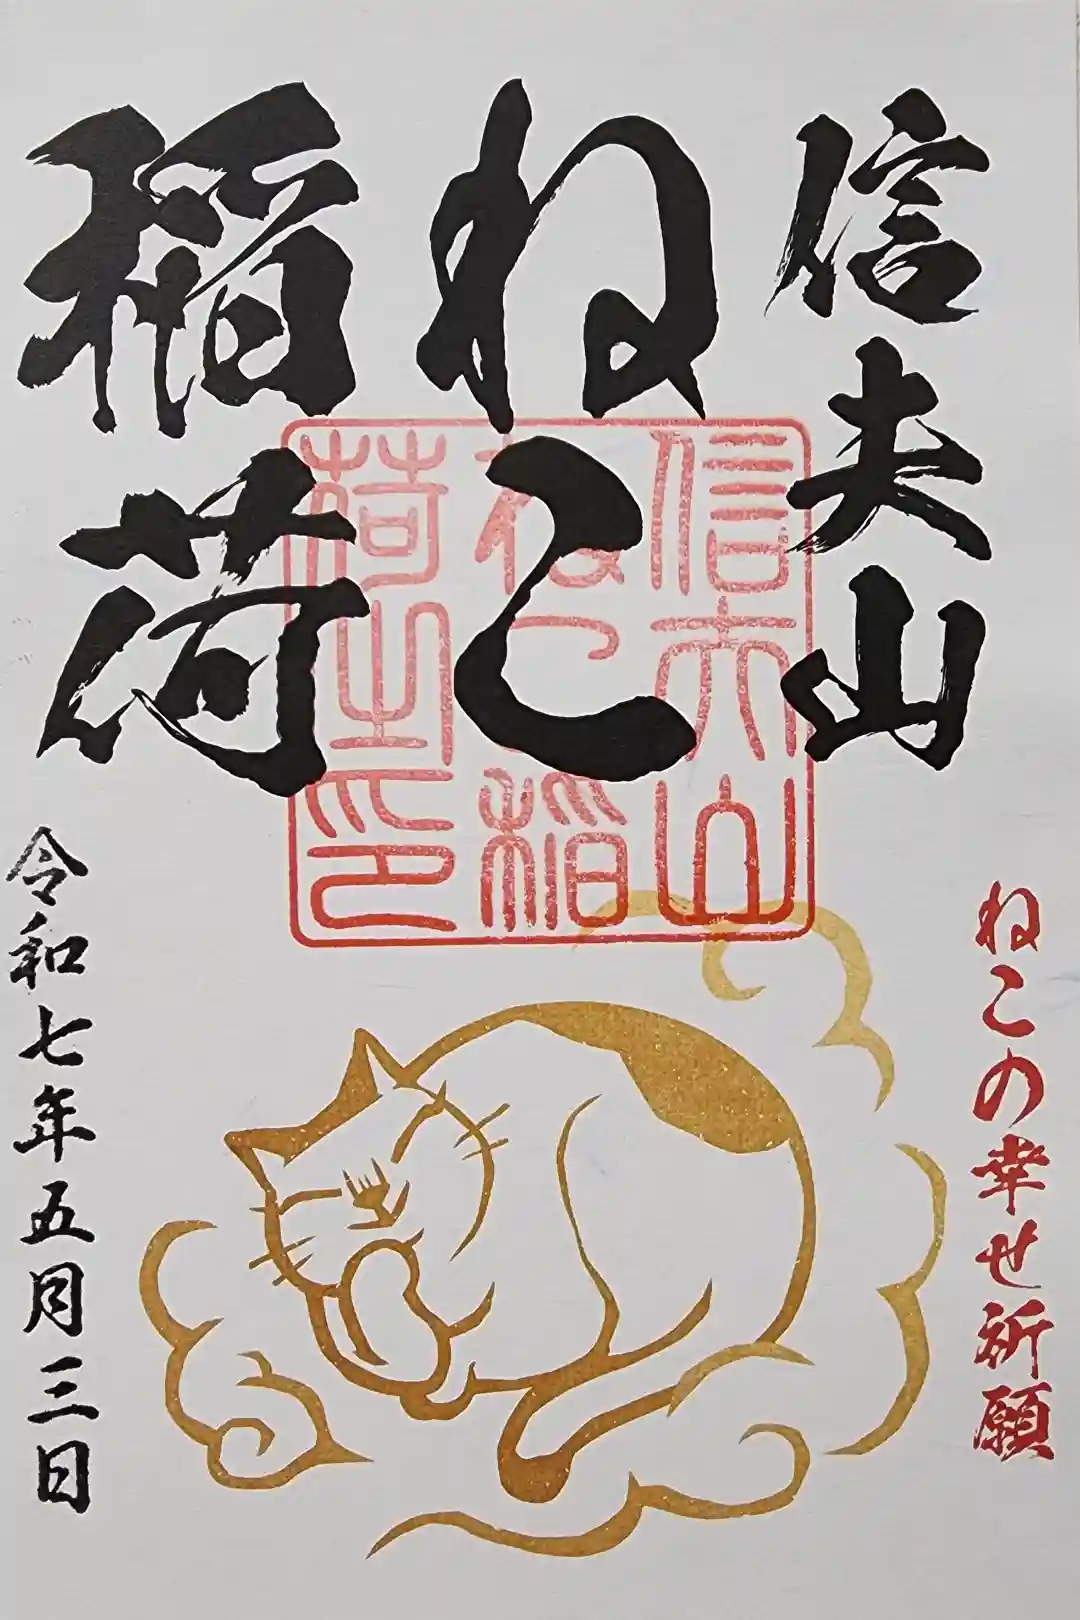 信夫山
ねこ
稲荷
信夫山
ねこ稲
荷山主印
ねこの幸せ祈願
令和七年五月三日